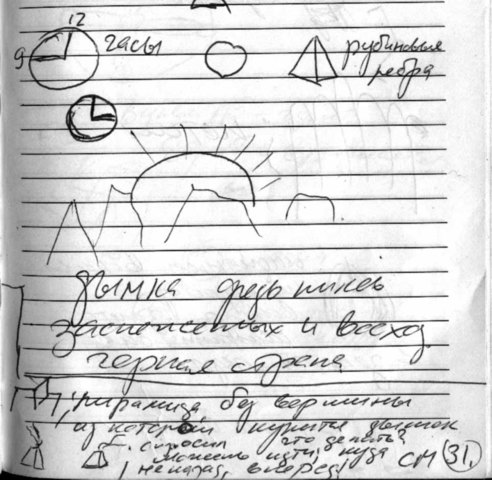 12
9 часы
рубиновые
ребра
дымка средь пиков
заснеженных и восход
черная страна
пирамида без вершины
из которой курится дымок
спросил что делать?
можешь идти, куда
не назад, вперед!
см 31.